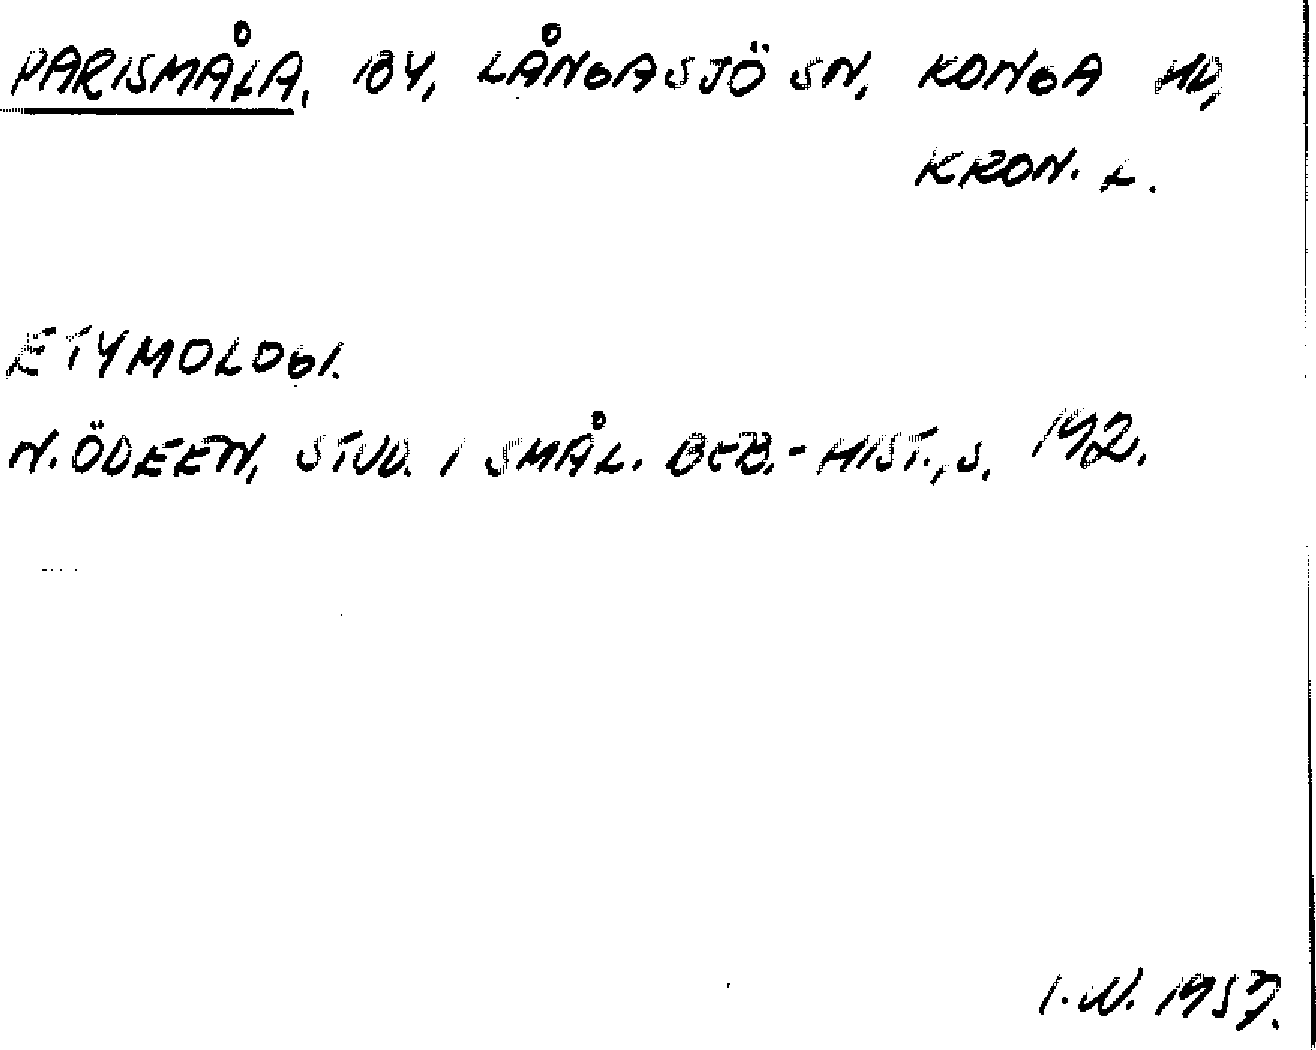 PARISMÅLA, BY, LÅNGASJÖ SN, KONGA HD,
KRON. L.
ETYMOLOGI.
N. ÖDEEN, STUD. I SMÅL. BEB.-HIST., S. 192.
I. N. 1957.